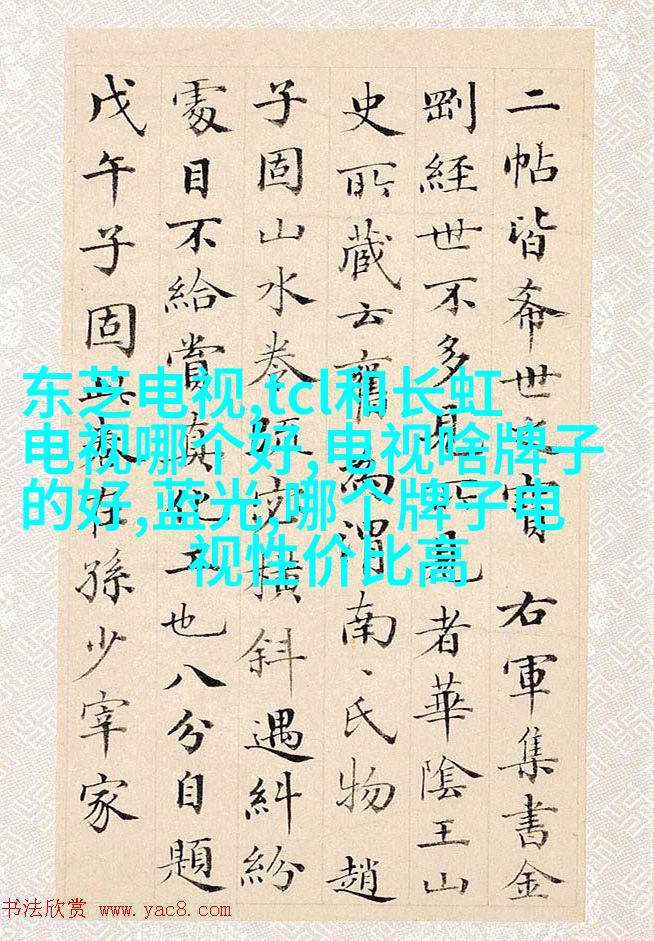 二帖皆希世之寶 右軍集書金
剛經世不多見所見者華陰王山
史所藏云舊為渭南、氏物 趙
子固山水卷交橫斜遇糾紛
處目不給賞真絕工也八分自題
戊午子固在孫少宰家
东芝电视,tcl和长虹
电视哪个好,电视啥牌子
的好,蓝光,哪个牌子电
视性价比高
书法欣赏 www.yac8.com